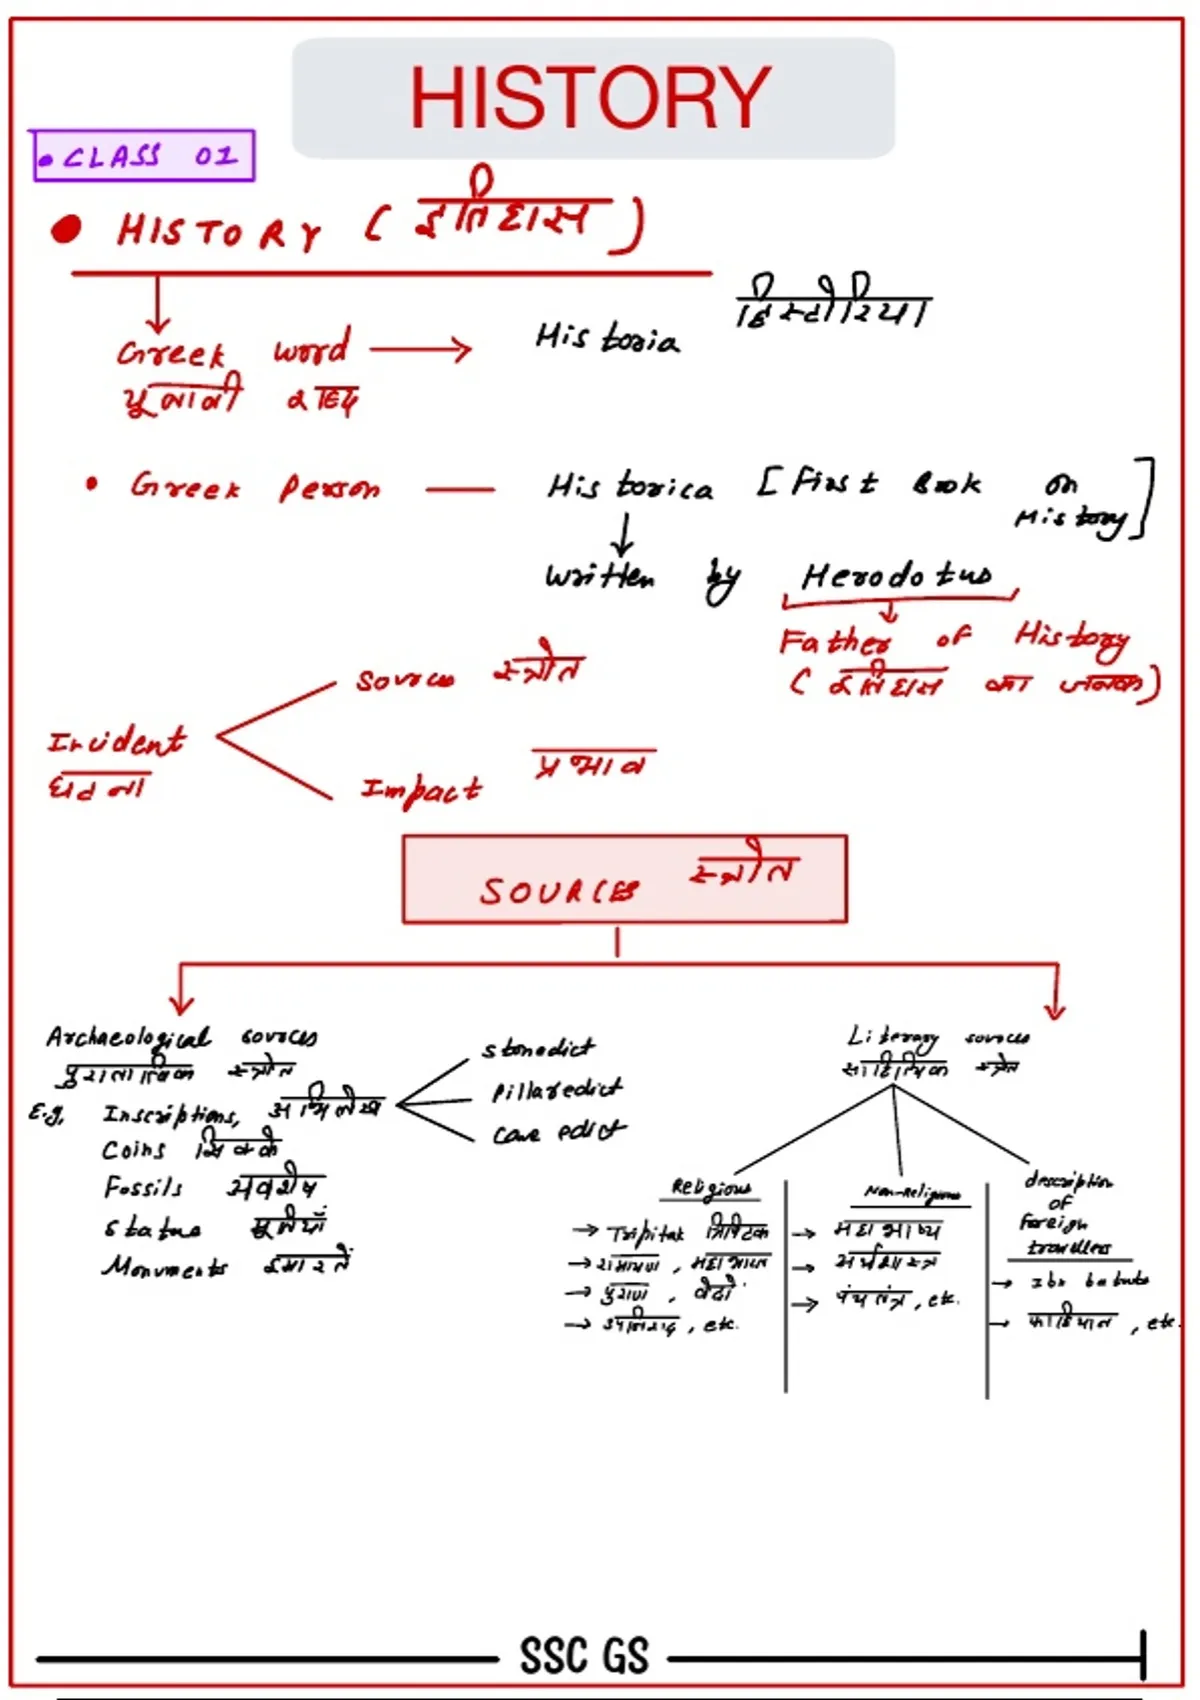 HISTORY
• CLASS 01
• HISTORY (इतिहास)
Greek word → Historia हिस्टोरिया
यूनानी शब्द
• Greek Person — Historica [First Book on History]
written by Herodotus
Father of History
(इतिहास का जनक)
Sources स्त्रोत
Incident
घटना
Impact प्रभाव
SOURCES स्त्रोत
Archaeological sources
पुरातात्विक स्त्रोत
E.g, Inscriptions, अभिलेख
stonedict
Pillaredict
Cave edict
Coins सिक्के
Fossils अवशेष
Status मूर्तियां
Monuments इमारतें
Literary sources
साहित्यिक स्त्रोत
Religious
→ Tripitak त्रिपिटक
→ रामायण, महाभारत
→ पुराण, वेदों
→ उपनिषद, etc.
Non-Religious
→ महाभाष्य
→ अर्थशास्त्र
→ पंचतंत्र, etc.
description
of
foreign
travellers
→ Ibn batuta
→ फाहियान, etc.
SSC GS